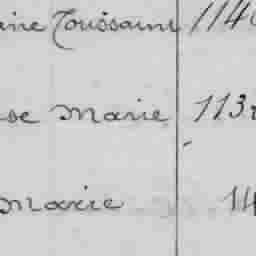 Toussaint 114
se Marie 113
Marie 14